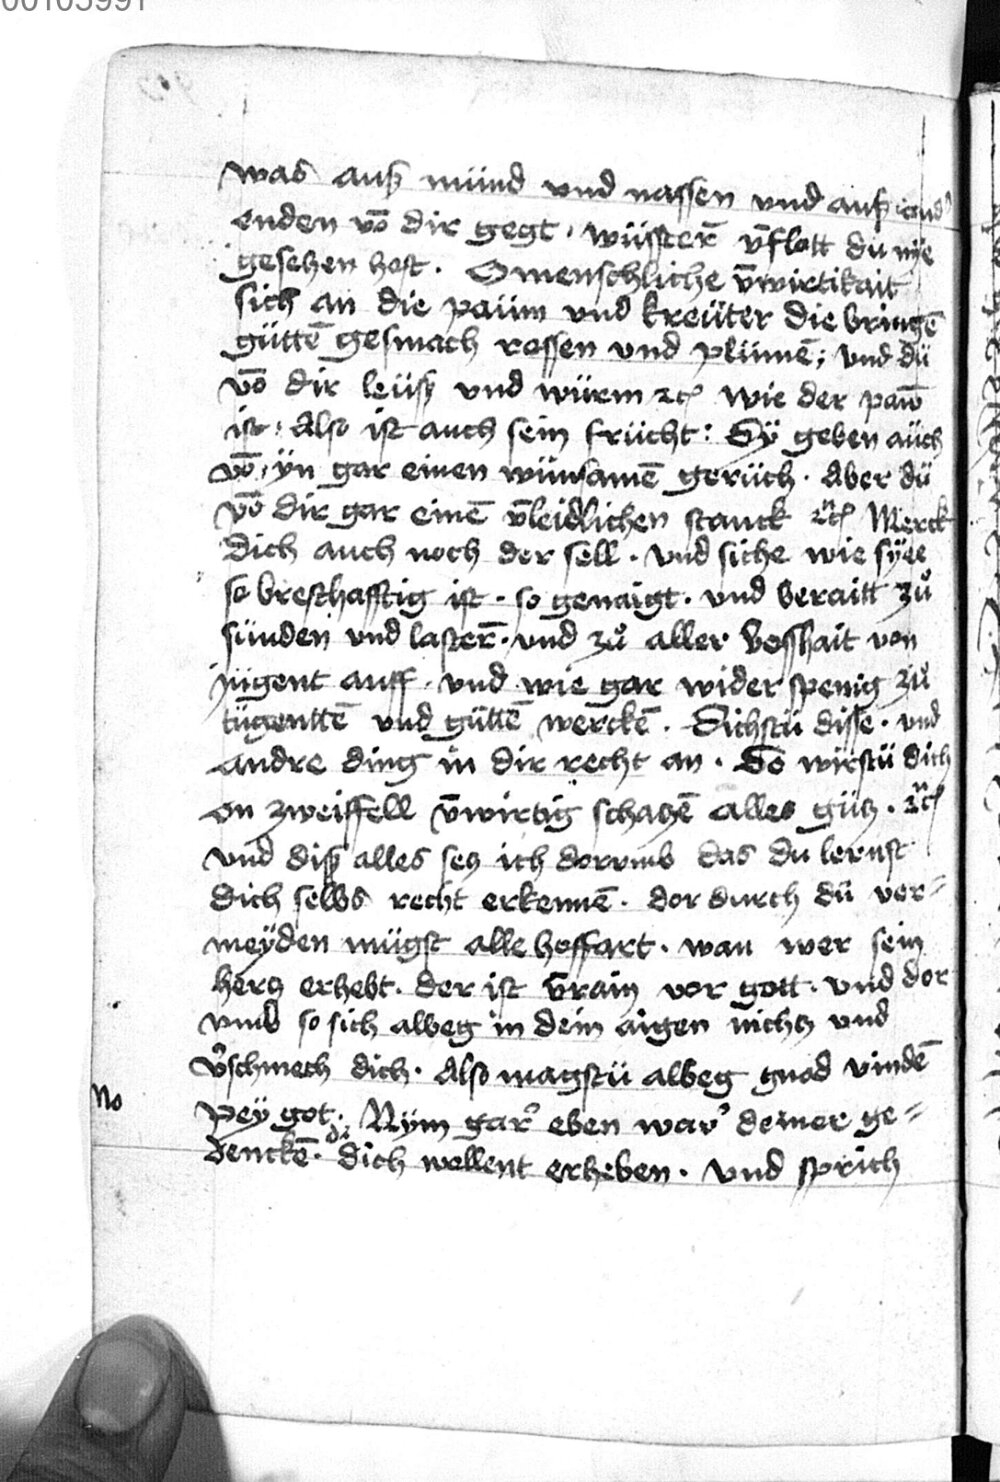 00105991
was auß münd und nassen und auß and'
enden vō dir gegt · wüsster̄ v̄flott du nÿe
gesehen hest · O menschliche v̄wirtikait
sich an die paüm vnd kreüter die bringē
güttē gesmach rossen vnd plümē; vnd dü
vō dir leüß vnd würm ꝛc̃ wie der paw̄
ist · Also ist auch sein frücht: Sÿ geben aüch
vō · ÿn gar einen wünsamē gerüch · Aber dü
vō dir gar einē v̄leidlichen stanck ꝛc̃ Merck
dich auch noch der sell · vnd siche wie sÿe
so bresthafftig ist · so genaigt · vnd beraitt zů
sünden vnd laster̄ · vnd zů aller bosshait von
jügent auff · vnd wie gar wider spenig zů
tügenttē vnd güttē werckē · Sichstü disse · vnd
andre ding in dir recht an · So wirstü dich
on zweiffell v̄wirtig schaczē alles gücz · ꝛc̃
vnd diß alles secz ich dorvmb das du lernst
dich selbs recht erkennē · dor durch dü ver=
meÿden mügst alle hoffart · wan wer sein
hercz erhebt · der ist v̄rain vor gott · vnd dor
vmb so sich albeg in dein aigen nichcz vnd
v̾schmech dich · Also magstü albeg gnod vindē
No
peÿ got · Nÿm gar̾ eben war̾ deiner ge=
denckē · di dich wellent erheben · vnd sprich